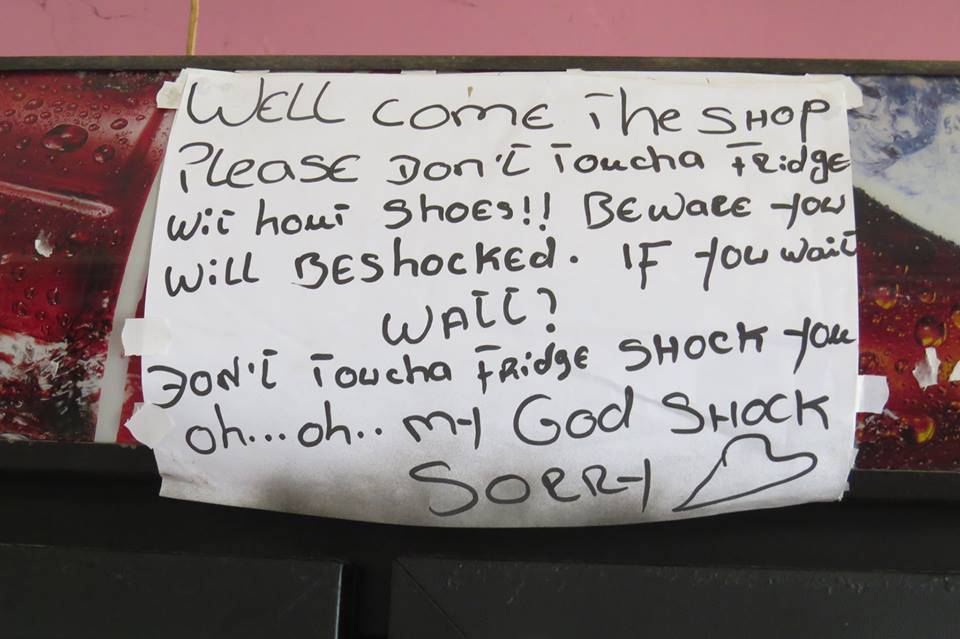 WELL come The SHOP
Please DON'T Toucha FRidge
WiT houT SHOES!! BEWARE you
Will BEShocked. IF you waiT
WAIT?
DON'T Toucha FRidge SHOCK you
oh...oh.. my God SHOCK
SORRY